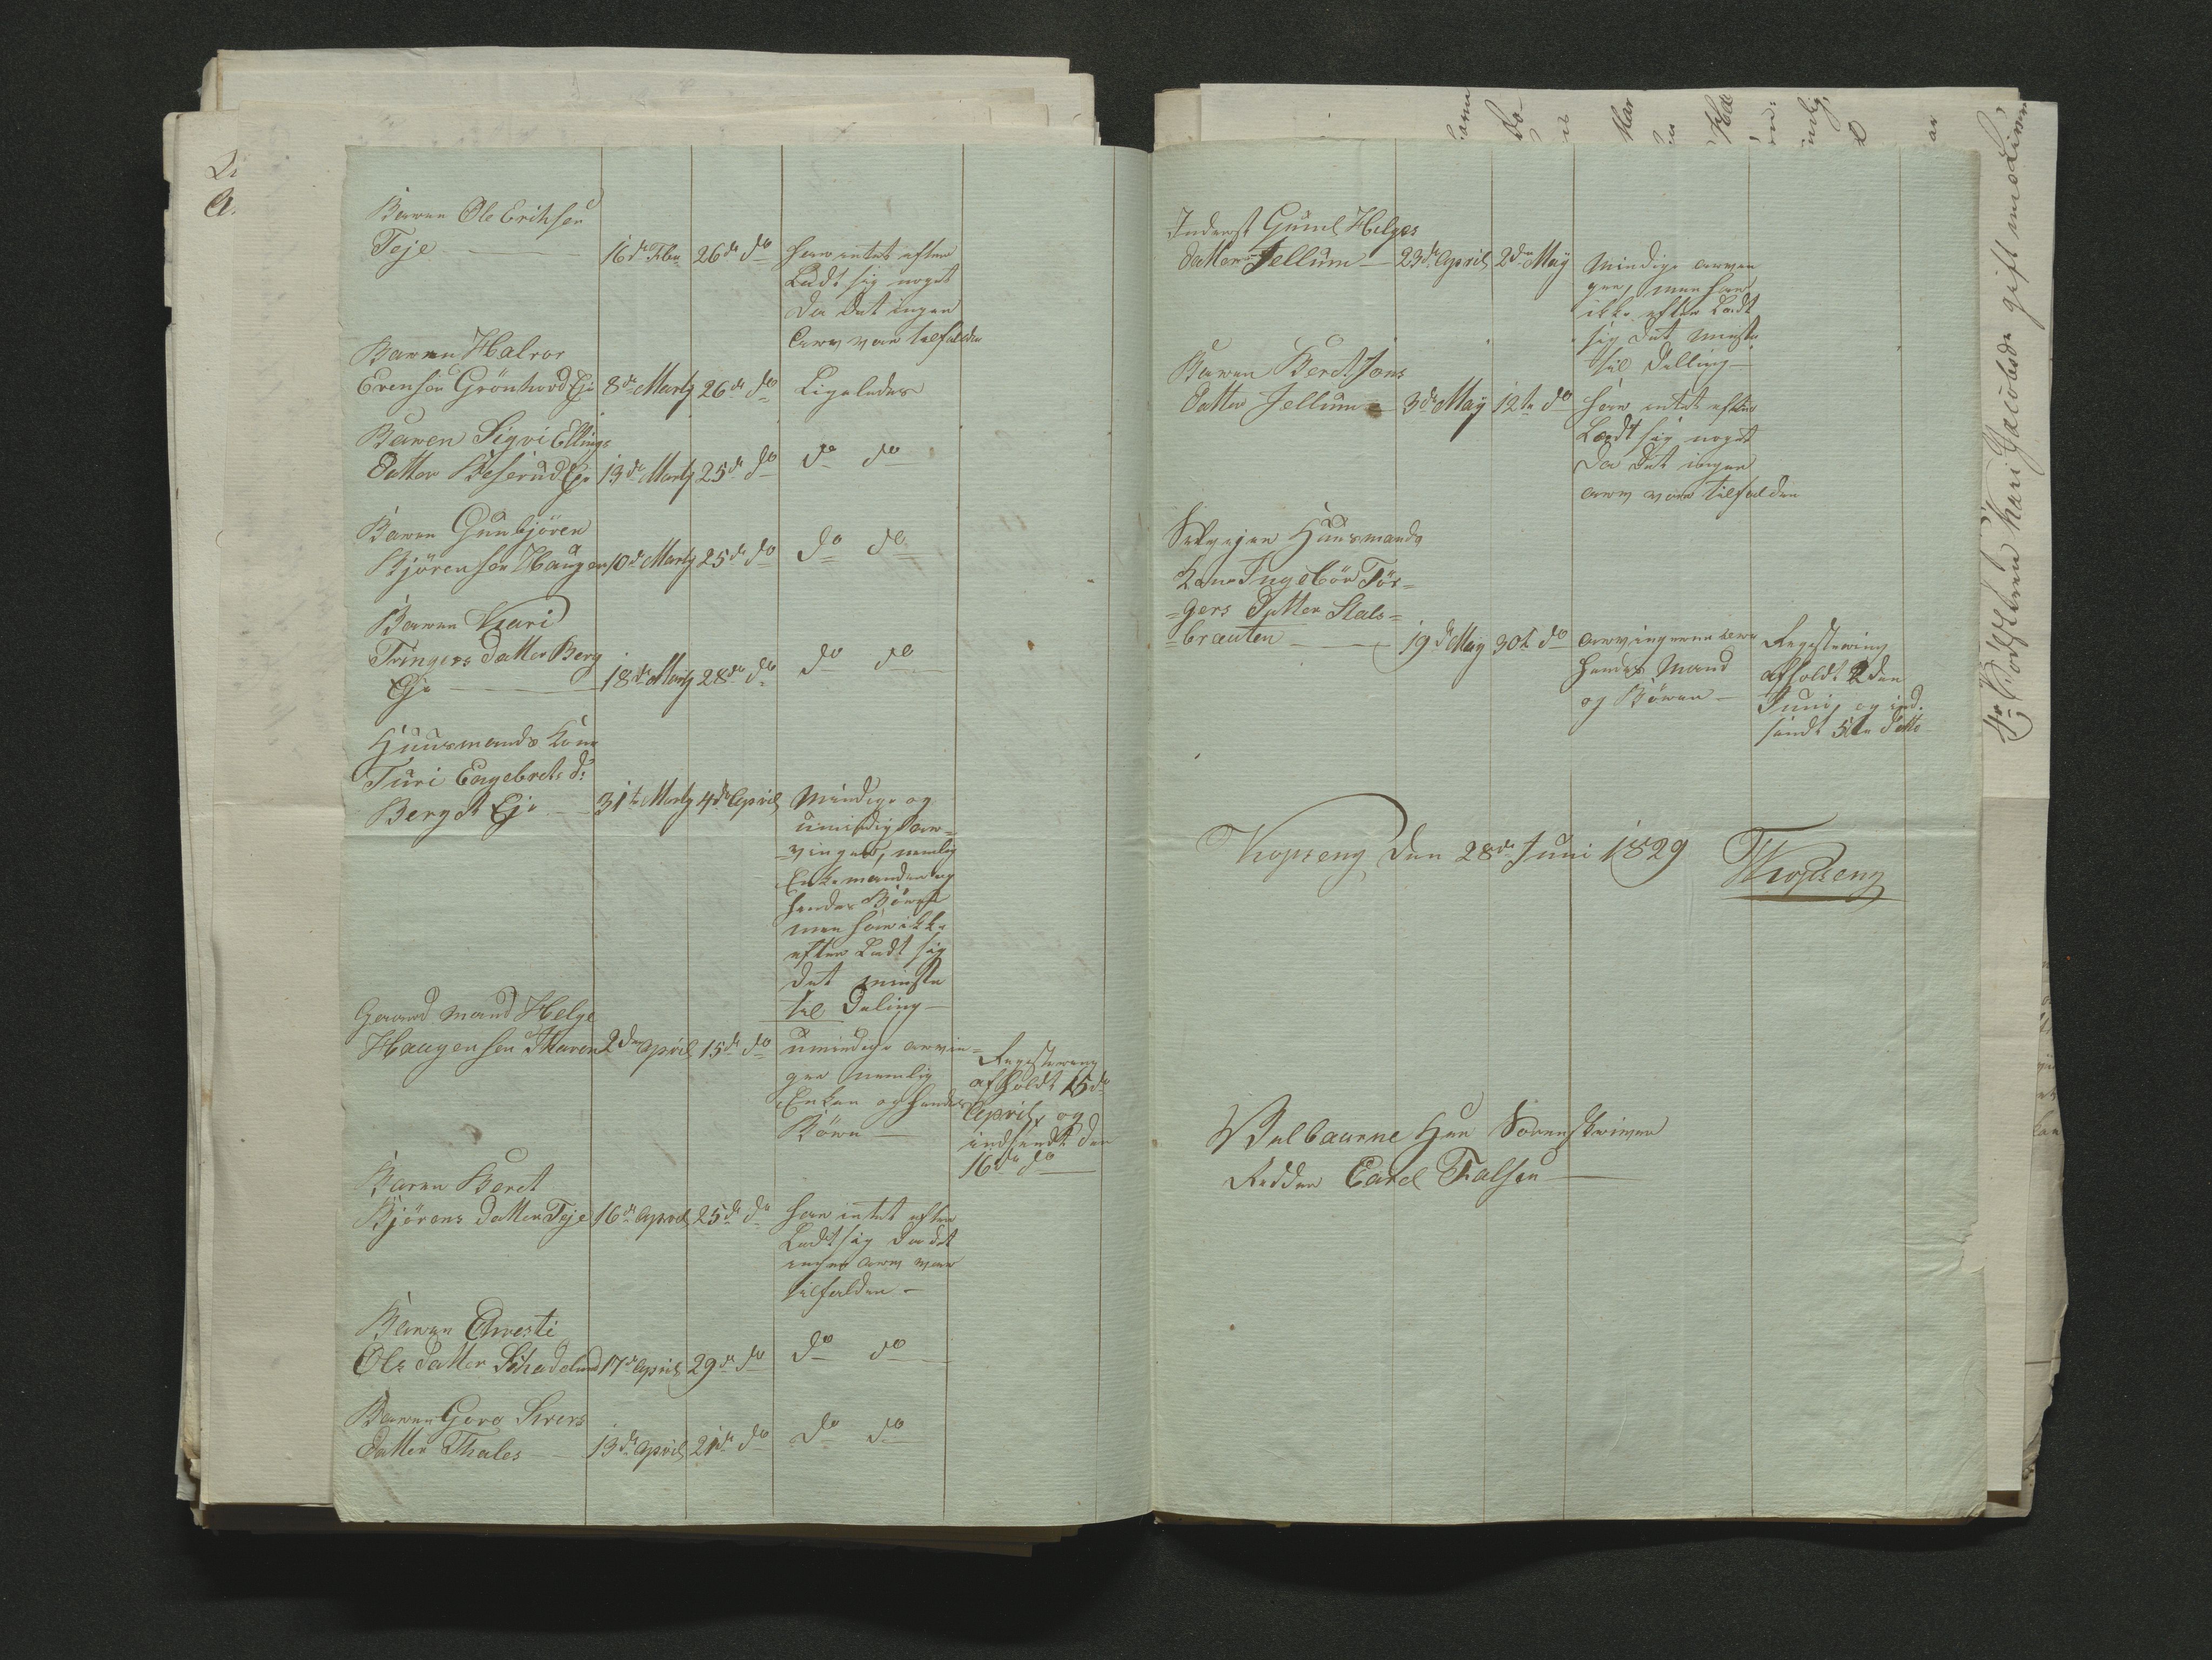 Barnen Ole Eriksen
Teje — 16de Febr 26de do har intet efter
Ladt sig noget
da det ingen
Arv var tilfalden
Barnen Halvor
Evensen Grönhovd Eje 8de Marty 26de do Ligeledes
Barnen Sigvi Ellings
Datter Beserud Eje 13de Marty 25de do do do
Barnen Gunbjören
Björensen Haugen 10de Marty 25de do do do
Barnen Kari
Tringers Datter Berg
Eje — 18de Marty 28de do do do
Huusmands Kone
Turi Engebrets d:
Berg et Eje — 31te Marty 4de April Mindige og
umindige Ar=
=vinger, nemlig
Enkemanden og
hendes Börn
men har ikke
efter Ladt sig
det minste
til Deling —
Gaard Mand Helge
Haugensen Maren 2den April 15de do umindige arvin=
ger nemlig
Enken og hendes
Börn —
Registrering
afholdt 15de
April, og
indsendt den
16de do —
Barnen Beret
Björens Datter Teje 16de April 25de do har intet efter
Ladt sig da det
ingen arv var
tilfalden —
Barnen Chresti
Ols Datter 17de April 29de do do do
Barnen Goro Sivers
Datter Thales — 13de April 21de do do do
Inderst Gunil Helges
Datter Jellum — 23de April 2den May Mindige arvin
ger, men har
ikke efter Ladt
sig det minste
til Delling —
Barnen Beret Jons
Datter Jellum — 3de May 12te do har intet efter
Ladt sig noget
da det ingen
arv var tilfalden
Huusmands
Kone Ingebör Tör=
=gers Datter Stals=
=brauten — 19de May 30te do arvingerne ere
hendes Mand
og Börn —
Registrering
afholdt 2den
Juni, og ind.
sendt 5te ditto
Kopseng den 28de Juni 1829 Kopseng
Velbaarne Herr Sorenskriver
Ridder Carel Falsen —
Dotteren Kari Jacobsdr gift med